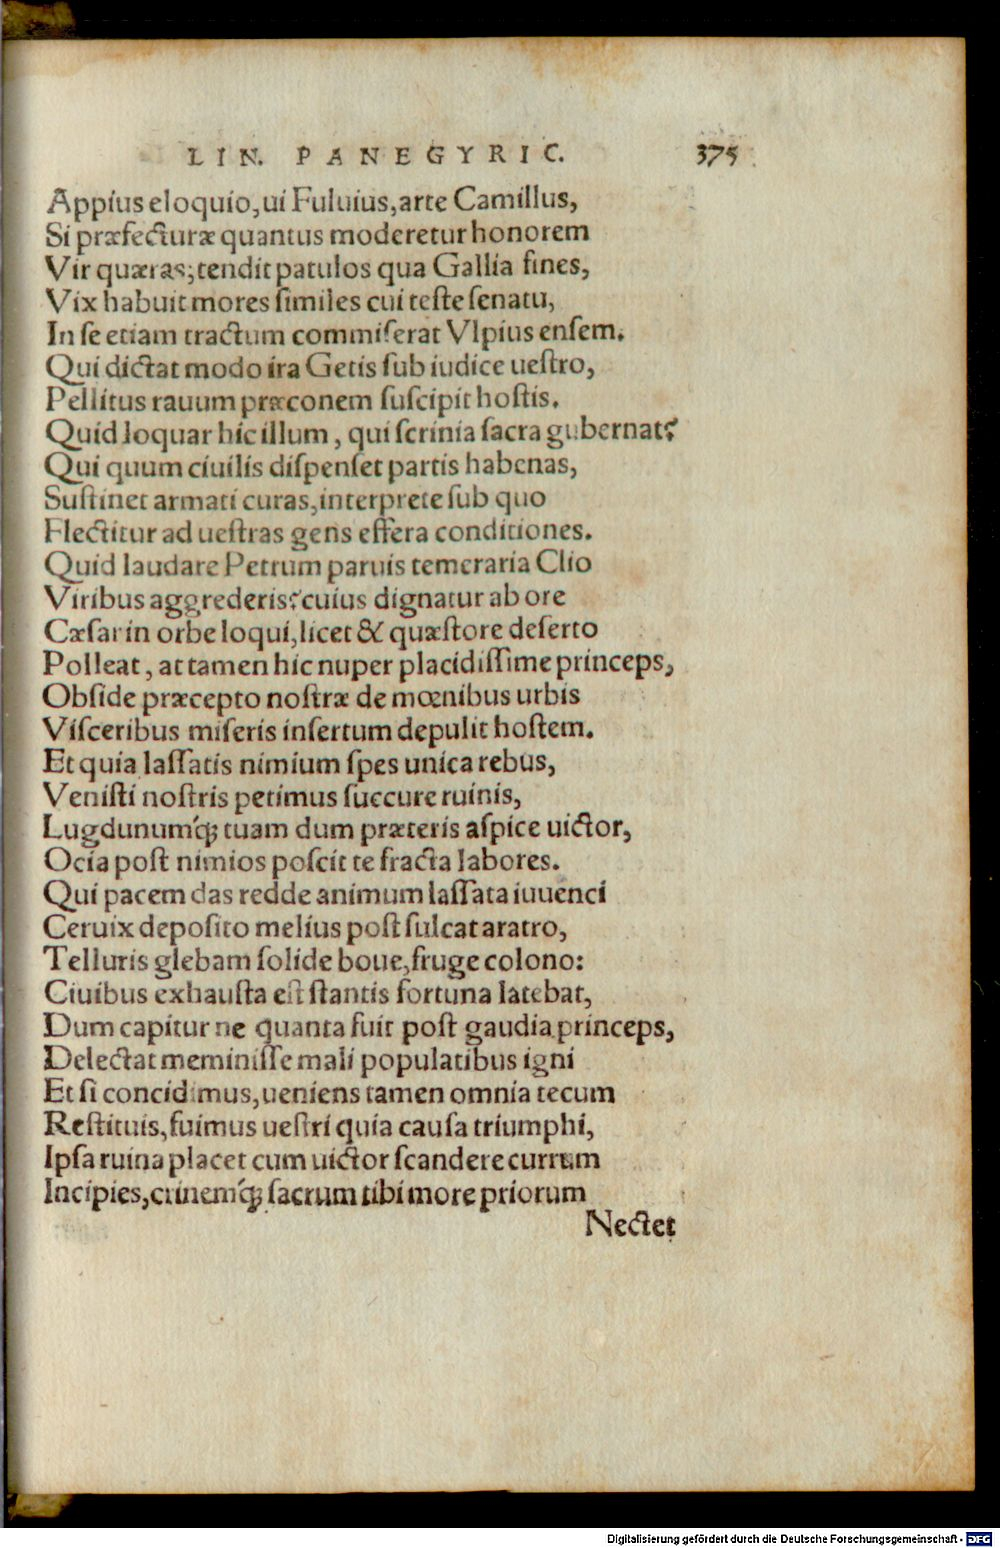 LIN. PANEGYRIC. 375
Appius eloquio, ui Fuluius, arte Camillus,
Si præfecturæ quantus moderetur honorem
Vir quæras; tendit patulos qua Gallia fines,
Vix habuit mores similes cui teste senatu,
In se etiam tractum commiserat Vlpius ensem.
Qui dictat modo ira Getis sub iudice uestro,
Pellitus rauum præconem suscipit hostis.
Quid loquar hic illum, qui scrinia sacra gubernat?
Qui quum ciuilis dispenset partis habenas,
Sustinet armati curas, interprete sub quo
Flectitur ad uestras gens effera conditiones.
Quid laudare Petrum paruis temeraria Clio
Viribus aggrederis? cuius dignatur ab ore
Cæsar in orbe loqui, licet & quæstore deserto
Polleat, at tamen hic nuper placidissime princeps,
Obside præcepto nostræ de mœnibus urbis
Visceribus miseris insertum depulit hostem.
Et quia lassatis nimium spes unica rebus,
Venisti nostris petimus succure ruinis,
Lugdunumq́; tuam dum præteris aspice uictor,
Ocia post nimios poscit te fracta labores.
Qui pacem das redde animum lassata iuuenci
Ceruix deposito melius post sulcat aratro,
Telluris glebam solide boue, fruge colono:
Ciuibus exhausta est stantis fortuna latebat,
Dum capitur ne quanta fuit post gaudia princeps,
Delectat meminisse mali populatibus igni
Et si concidimus, ueniens tamen omnia tecum
Restituis, fuimus uestri quia causa triumphi,
Ipsa ruina placet cum uictor scandere currum
Incipies, crinemq́; sacrum tibi more priorum
Nectet
Digitalisierung gefördert durch die Deutsche Forschungsgemeinschaft - DFG